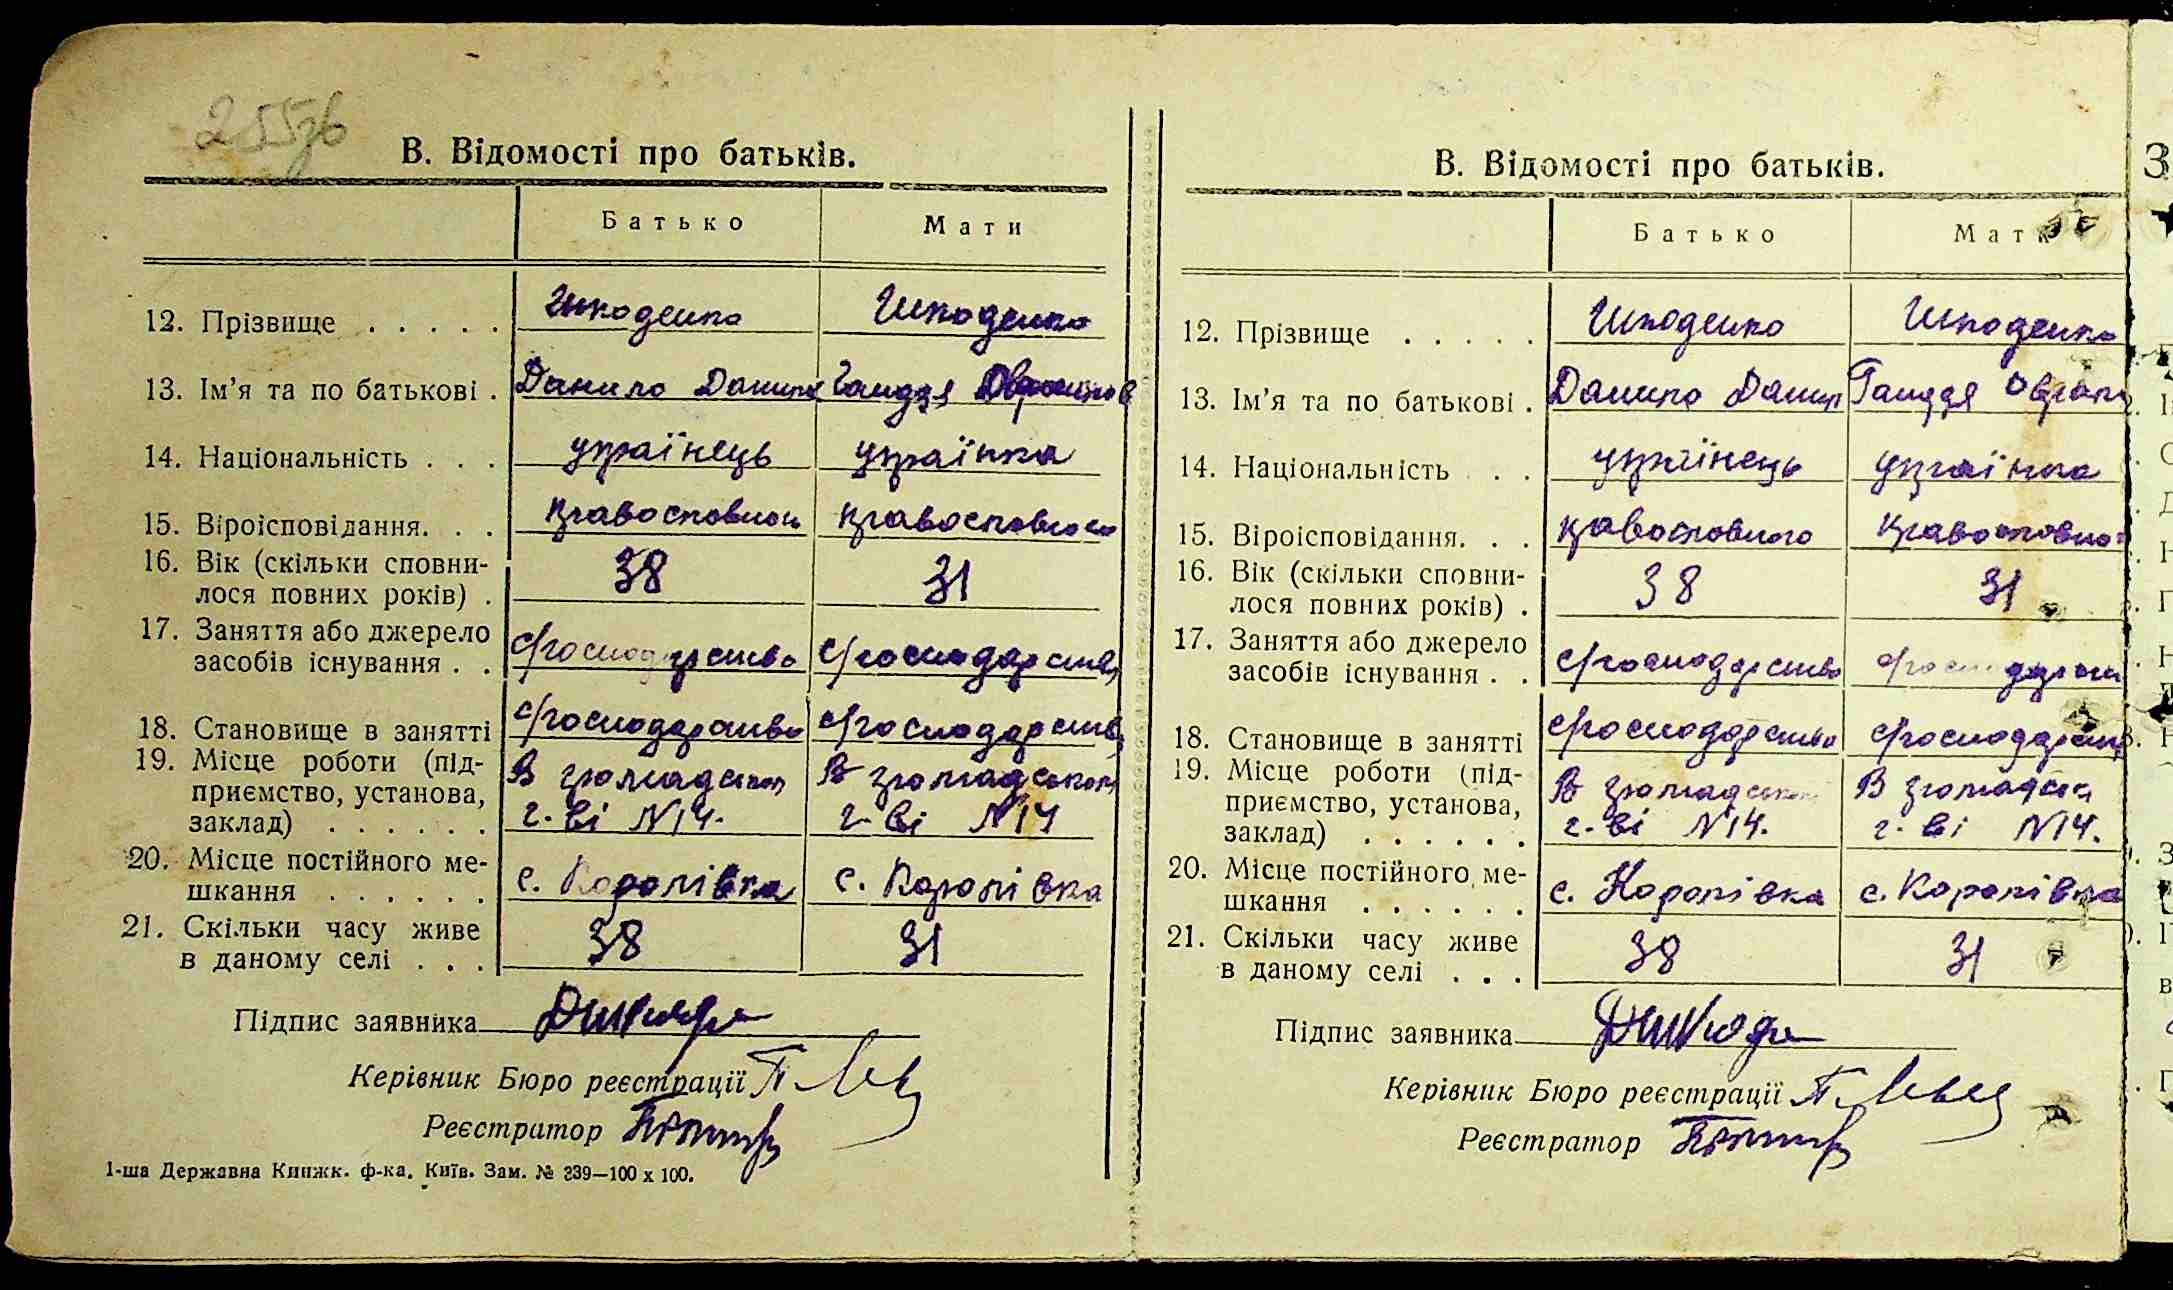 255зв
В. Відомості про батьків.
Батько Мати
12. Прізвище . . . . . Шкоденко Шкоденко
13. Ім’я та по батькові . Данило Данил Гандзя
14. Національність . . . українець українка
15. Віроісповідання. . . православної православної
16. Вік (скільки сповни-
лося повних років) . 38 31
17. Заняття або джерело
засобів існування . . с/господарство с/господарств
18. Становище в занятті с/господарство с/господарств
19. Місце роботи (під-
приємство, установа, В громадськом В громадськом
заклад) . . . . . . г-ві N14. г-ві N14
20. Місце постійного ме-
шкання . . . . . . с. Королівка с. Королівка
21. Скільки часу живе
в даному селі . . . 38 31
Підпис заявника
Керівник Бюро реєстрації
Реєстратор
1-ша Державна Книжк. ф-ка. Київ. Зам. № 239—100 х 100.
В. Відомості про батьків.
Батько Мати
12. Прізвище . . . . . Шкоденко Шкоденко
13. Ім’я та по батькові . Данило Данил Гандзя
14. Національність . . . українець українка
15. Віроісповідання. . . православного православно
16. Вік (скільки сповни-
лося повних років) . 38 31
17. Заняття або джерело
засобів існування . . с/господарство
18. Становище в занятті с/господарство с/господарств
19. Місце роботи (під-
приємство, установа, В громадськом В громадськ
заклад) . . . . . . г-ві N14. г-ві N14.
20. Місце постійного ме-
шкання . . . . . . с. Королівка с. Королівка
21. Скільки часу живе
в даному селі . . . 38 31
Підпис заявника
Керівник Бюро реєстрації
Реєстратор